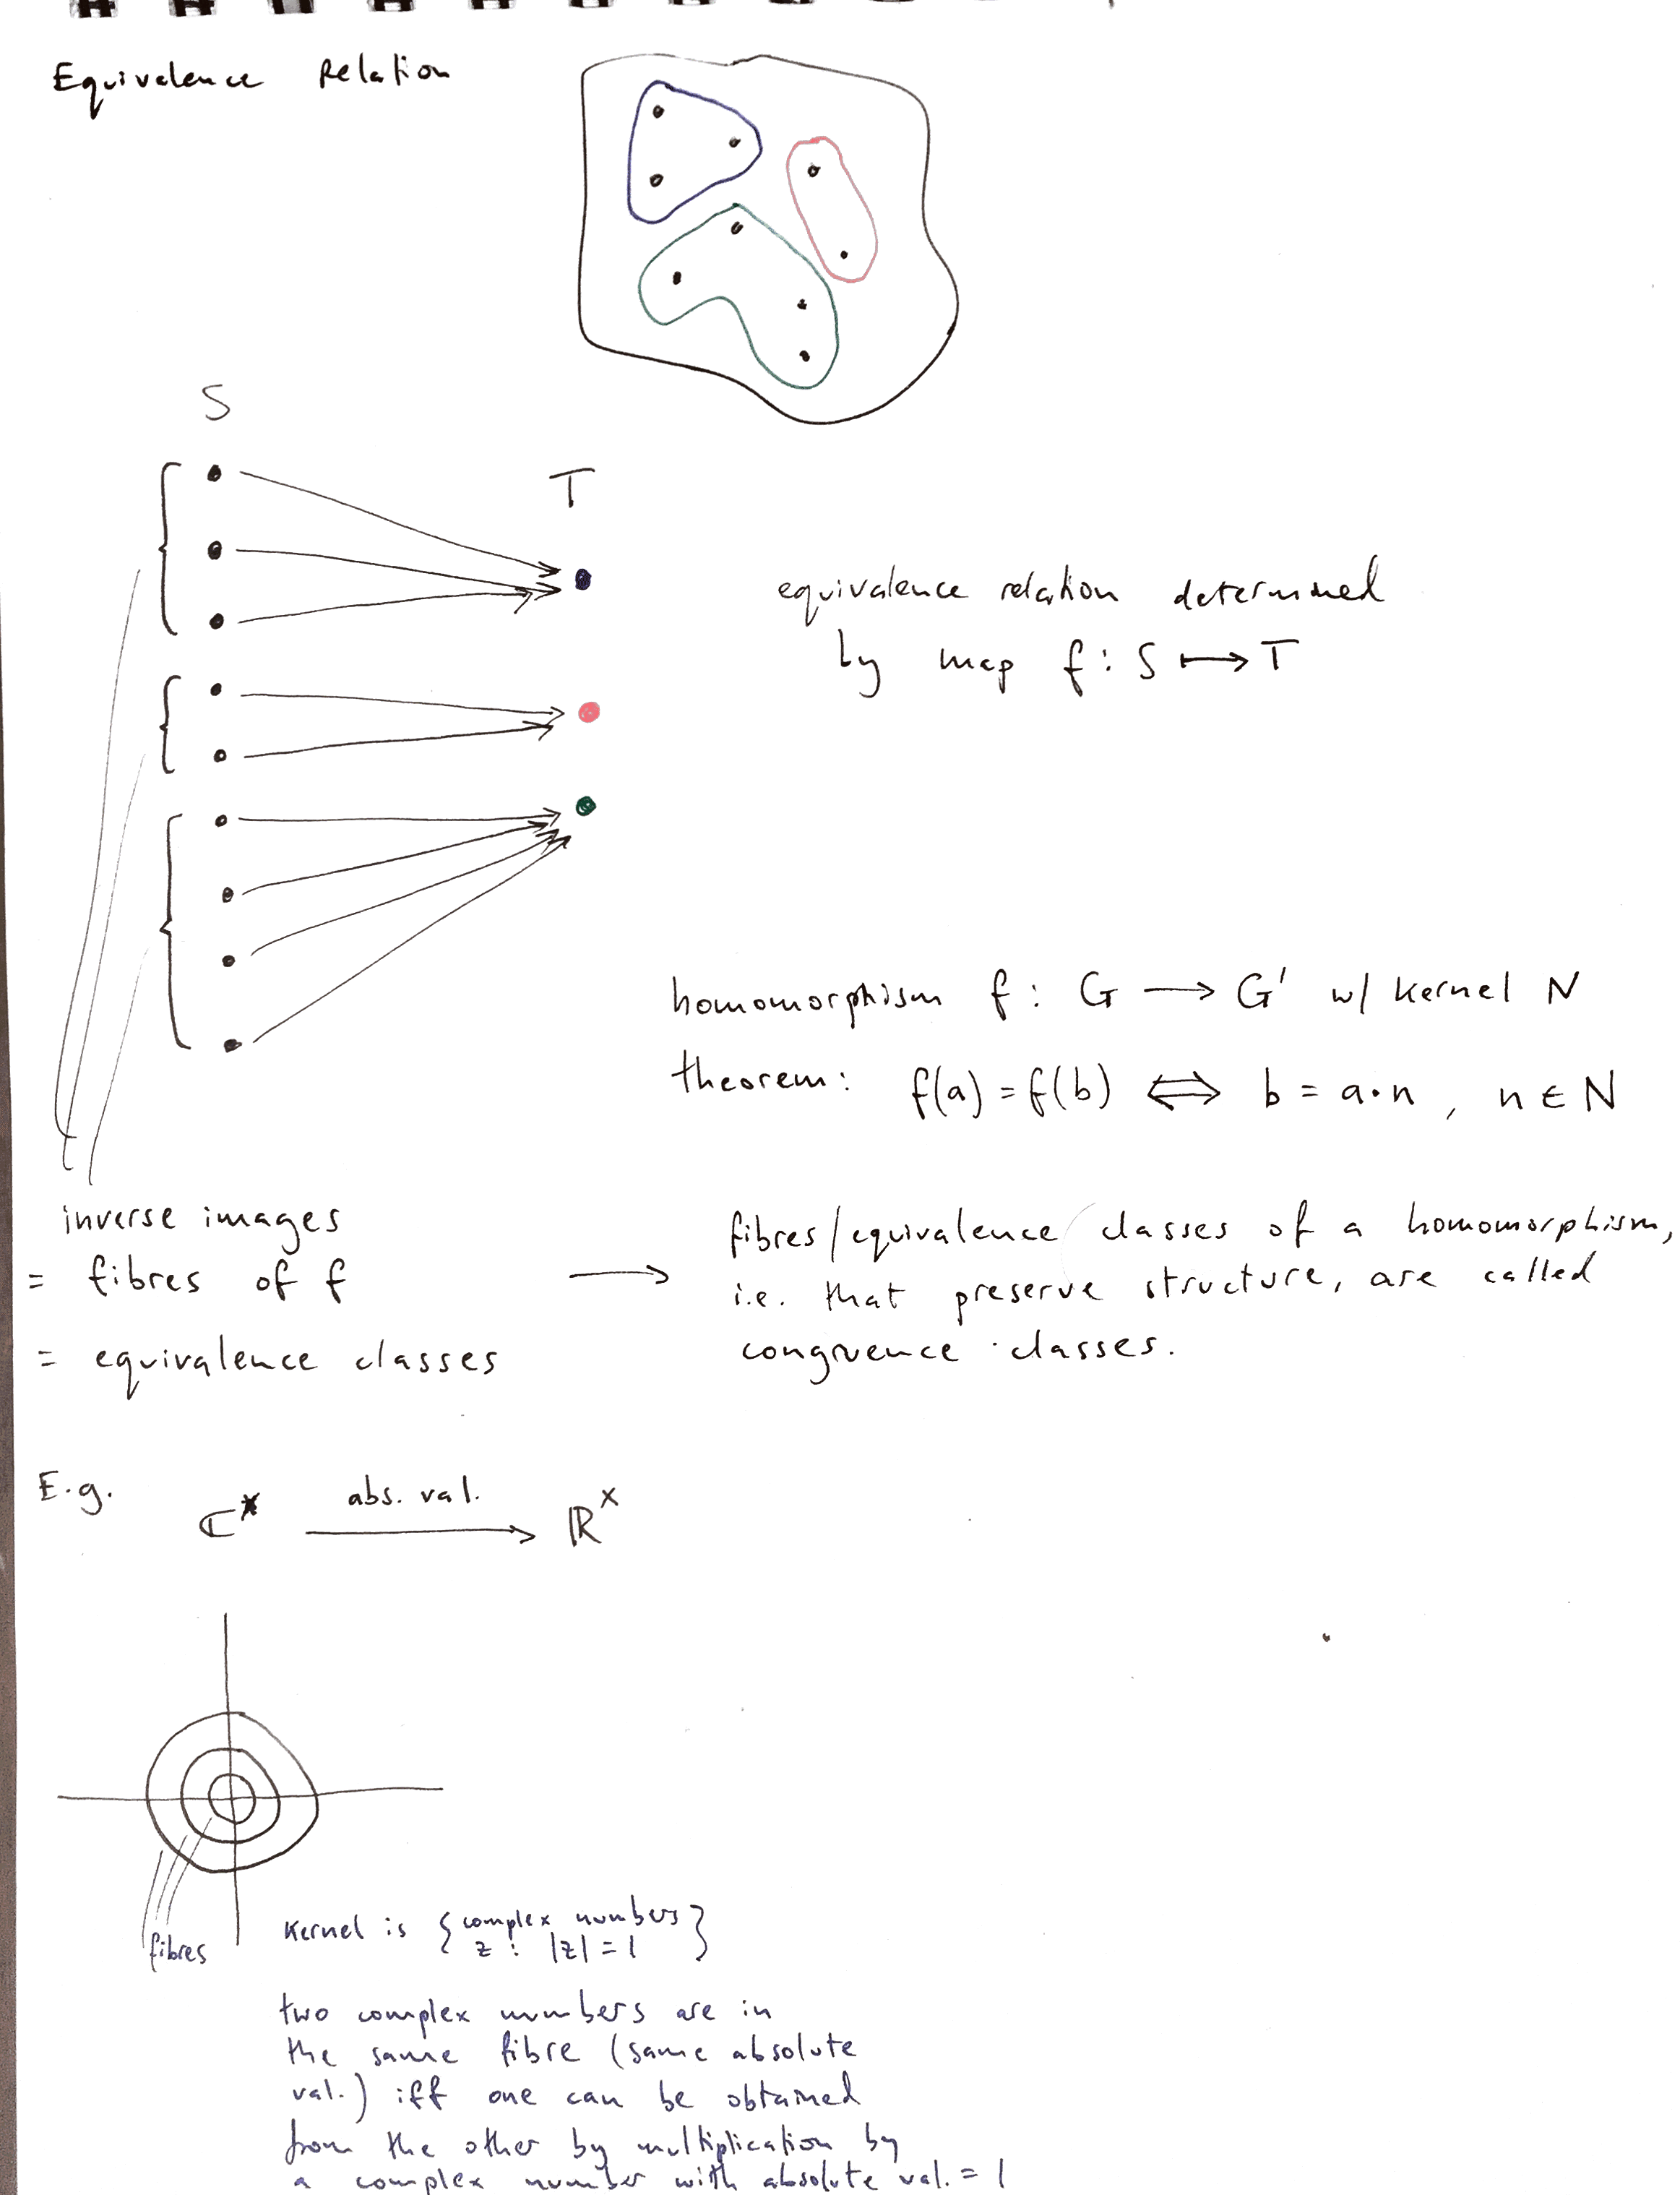 Equivalence Relation
S
T
equivalence relation determined
by map f : S ↦ T
homomorphism f : G ⟶ G' w/ kernel N
theorem: f(a) = f(b) ⟺ b = a·n , n ∈ N
inverse images
= fibres of f
= equivalence classes
⟶ fibres/equivalence classes of a homomorphism,
i.e. that preserve structure, are called
congruence classes.
E.g.
abs. val.
ℂ^× ⟶ ℝ^×
fibres
Kernel is { complex numbers
z : |z| = 1 }
two complex numbers are in
the same fibre (same absolute
val.) iff one can be obtained
from the other by multiplication by
a complex number with absolute val. = 1